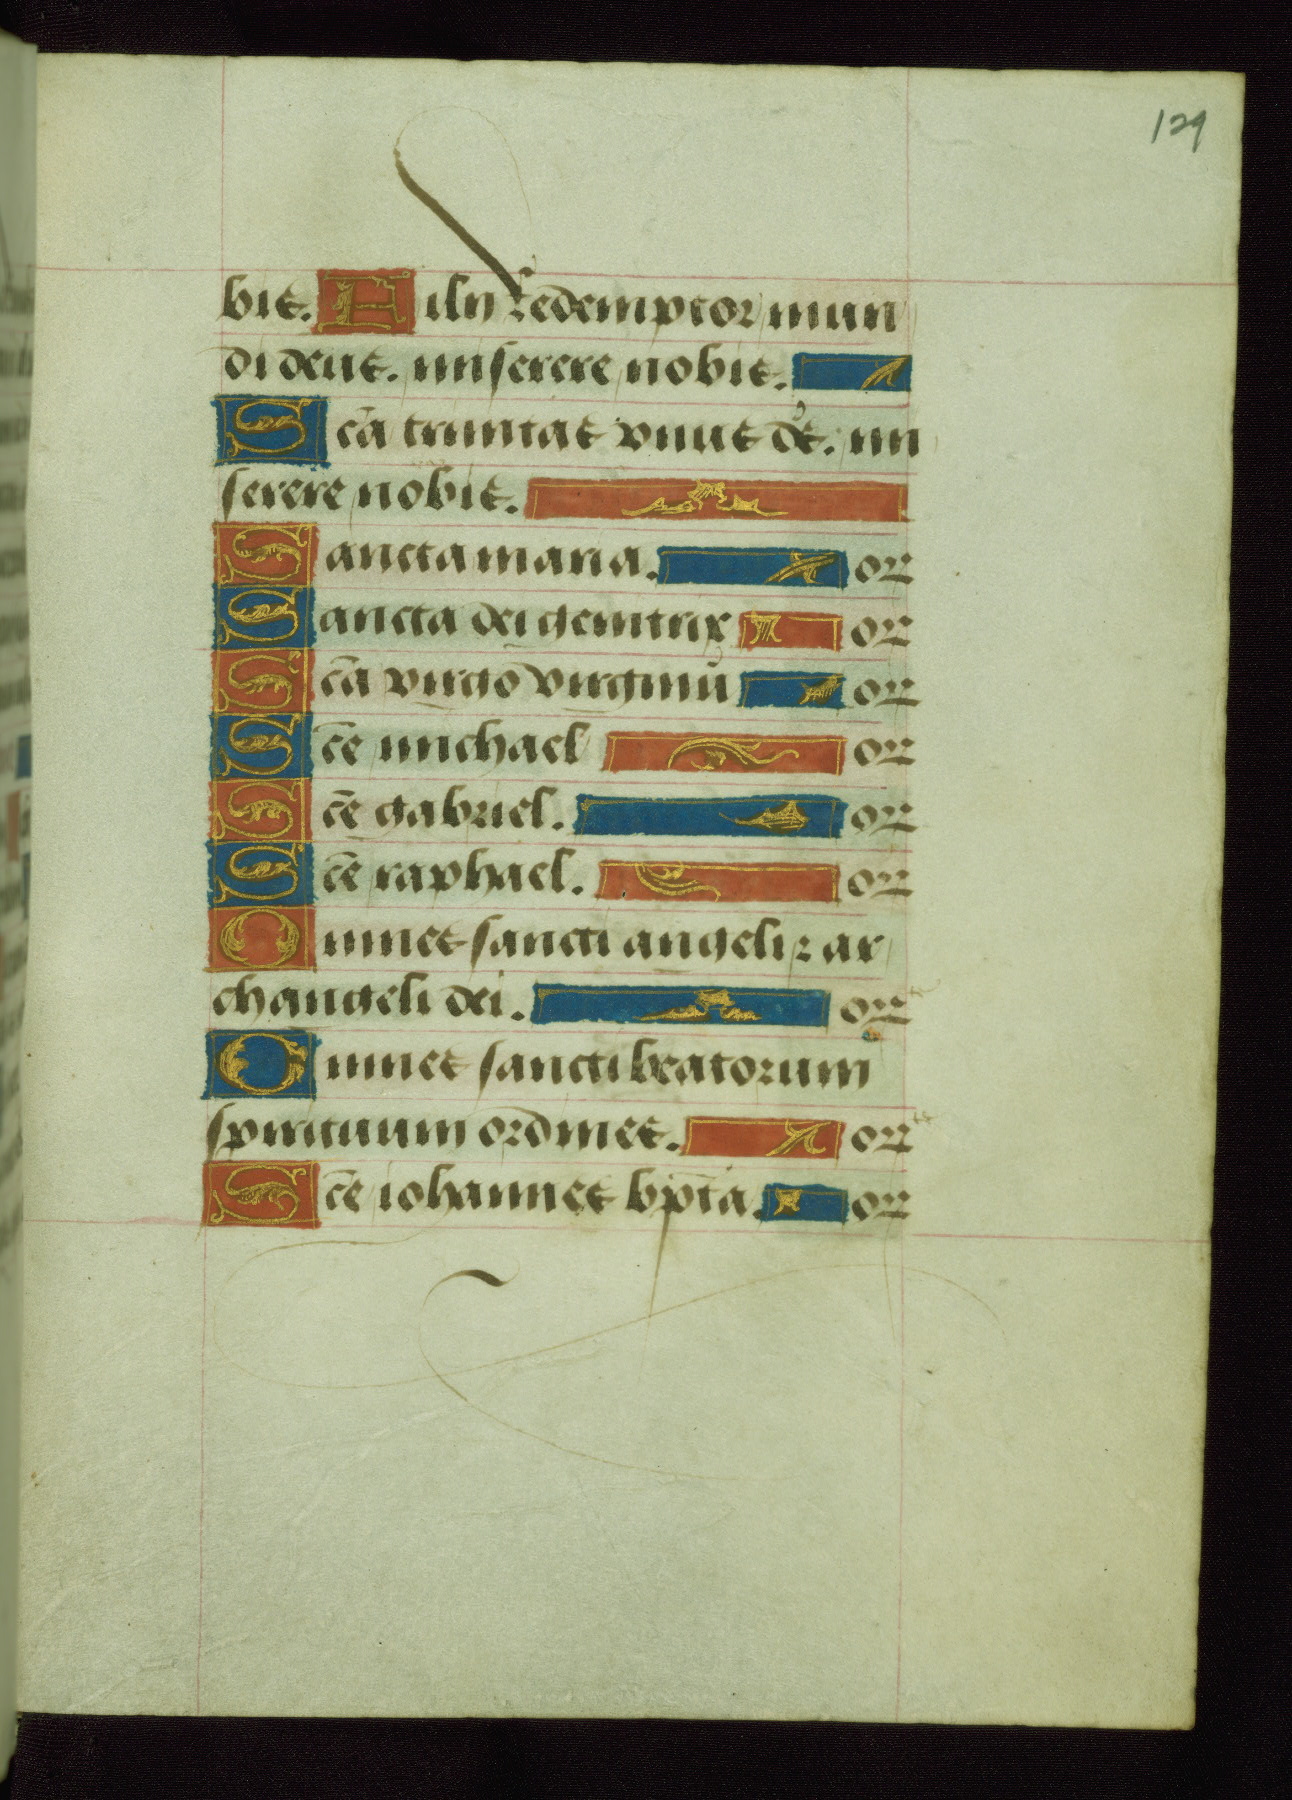 129
bis. Fili redemptor mun
di deus. miserere nobis.
Scā trinitas vnus de᷒. mi
serere nobis.
Sancta maria. or
Sancta dei genitrix or
Scā virgo virginū or
Scē michael or
Scē gabriel. or
Scē raphael. or
Omnes sancti angeli ⁊ ar
changeli dei. or
Omnes sancti beatorum
spirituum ordines. or
Scē iohannes bp̄ta. or